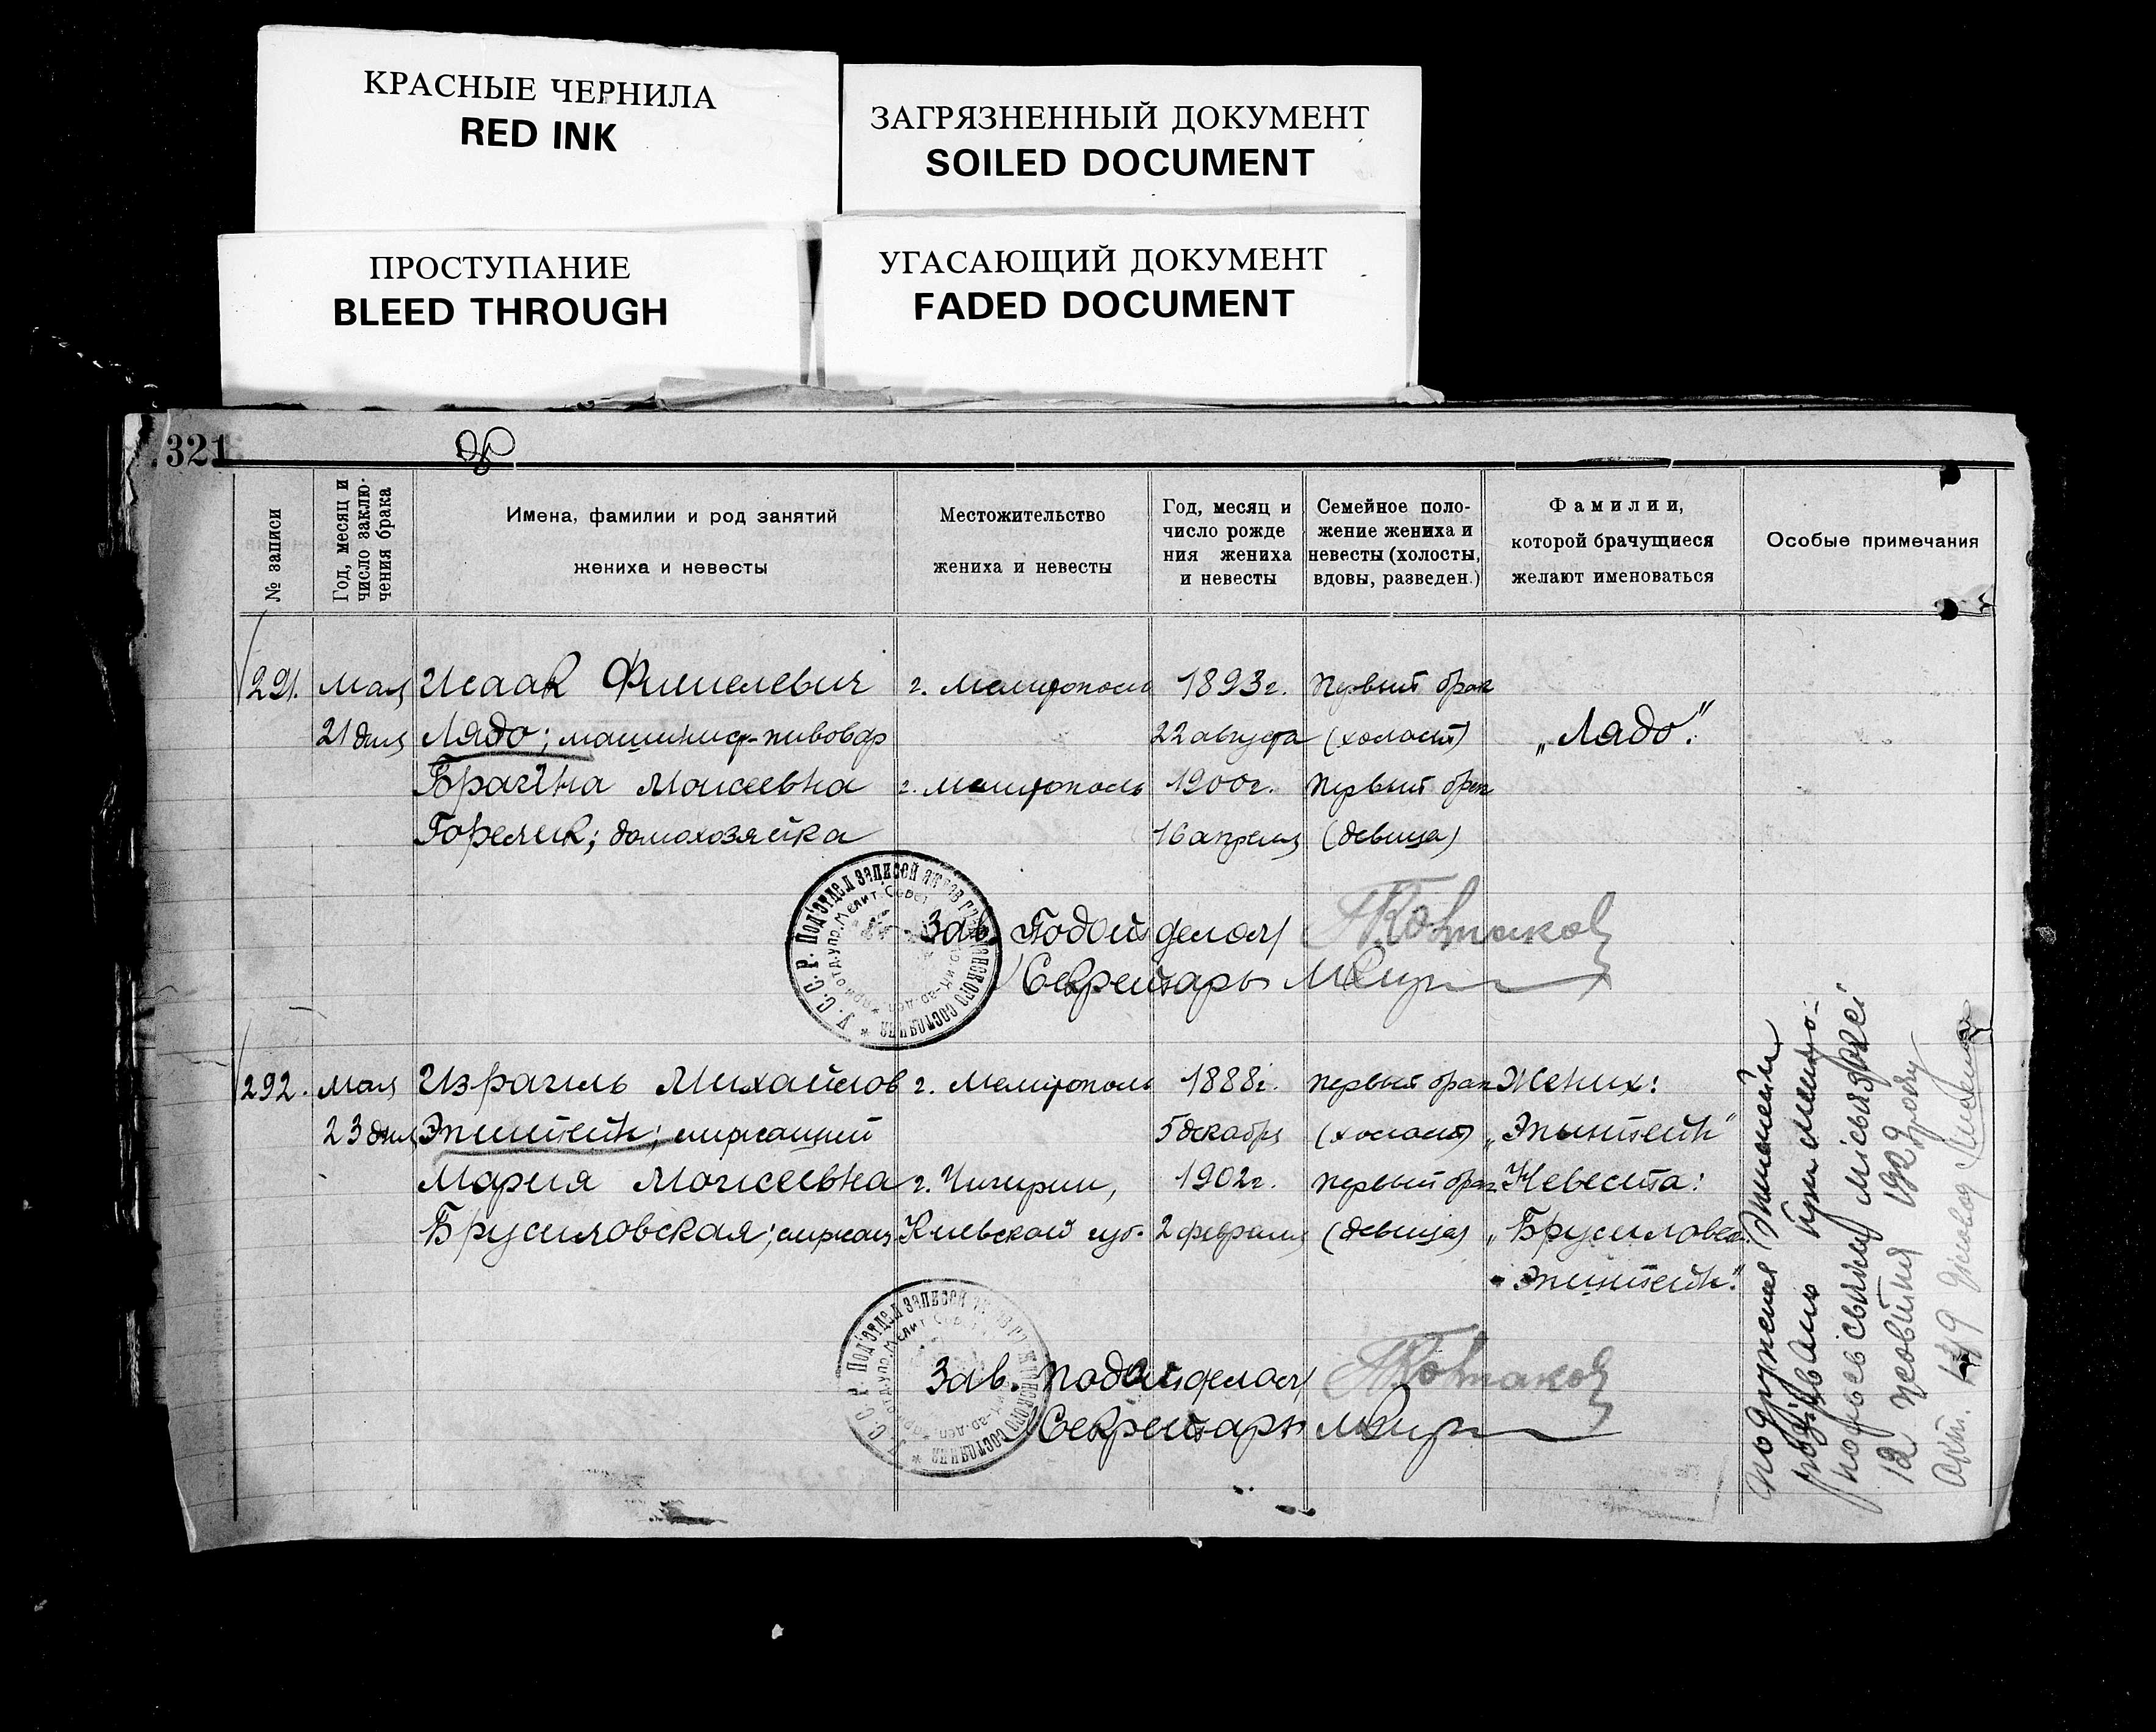 КРАСНЫЕ ЧЕРНИЛА
RED INK
ЗАГРЯЗНЕННЫЙ ДОКУМЕНТ
SOILED DOCUMENT
ПРОСТУПАНИЕ
BLEED THROUGH
УГАСАЮЩИЙ ДОКУМЕНТ
FADED DOCUMENT
321
№ записи
Год, месяц и
число заклю-
чения брака
Имена, фамилии и род занятий
жениха и невесты
Местожительство
жениха и невесты
Год, месяц и
число рожде
ния жениха
и невесты
Семейное поло-
жение жениха и
невесты (холосты,
вдовы, разведен.)
Фамилии,
которой брачущиеся
желают именоваться
Особые примечания
291. Мая Исаак Фишелевич г. Мелитополь 1893г. первый брак
21 дня Лядо; машинист-пивовар 22 августа (холост) „Лядо".
Брайна Моисеевна г. Мелитополь 1900г. первый брак
Горелик; домохозяйка 16 апреля (девица)
Зав. Подотделом
Секретарь
292. Мая Израиль Михайлов г. Мелитополь 1888г. первый брак Жених:
23 дня Эпштейн; служащий 5 декабря (холост) „Эпштейн"
Мария Моисеевна г. Чигирин, 1902г. первый брак Невеста:
Брусиловская; служащ Киевской губ. 2 февраля (девица) „Брусиловск.
- Эпштейн".
Зав. подотделом
Секретарь
У. С. С. Р. Под'отдел записей актов гражданского состояния
подружжя Эпштейн
розірвано при Меліто-
12 жовтня 1929 року